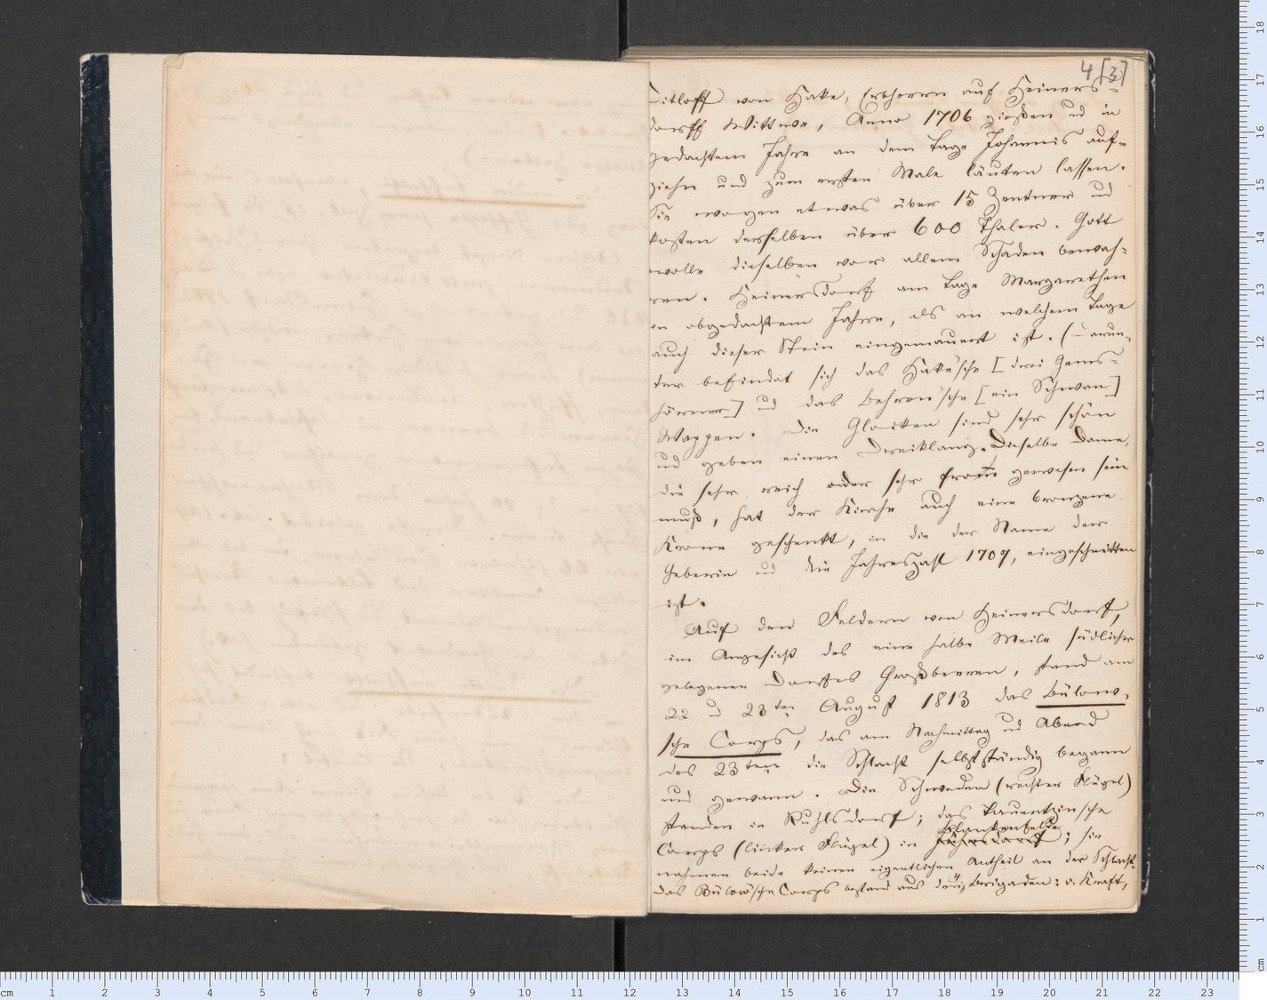 4 [3]
Ditloff von Hake, Erbherrn auf Heiners-
dorff Wittwe, Anno 1706 gießen ud in
gedachtem Jahre an dem Tage Johannis auf-
ziehn und zum ersten Male läuten lassen.
Sie wogen etwas über 15 Zentner ud
kosten derselben über 600 Thaler. Gott
wolle dieselben vor allem Schaden bewah-
ren. Heinersdorf am Tage Margarethen
in obgedachtem Jahre, als an welchem Tage
auch dieser Stein eingemauert ist. (Darun-
ter befindet sich das Hake'sche [drei Gems-
hörner] ud das Behren'sche [ein Schwan]
Wappen. Die Glocken sind sehr schön
ud geben einen Dreiklang. Dieselbe Dame,
die sehr reich oder sehr from̄ gewesen sein
muß, hat der Kirche auch eine bronzene
Krone geschenkt, in die der Name der
Geberin ud die Jahreszahl 1709, eingeschnitten
ist.
Auf den Feldern von Heinersdorf,
im Angesicht des eine halbe Meile südlicher
gelegenen Dorfes Großbeeren, stand am
22 u 23ten August 1813 das Bülow-
sche Corps, das am Nachmittag ud Abend
des 23ten die Schlacht selbstständig begann
und gewann. Die Schweden (rechter Flügel)
standen in Ruhlsdorf; das Tauentzinsche
Blankenfelde
Corps (linker Flügel) in ; sie
nahmen beide keinen eigentlichen Antheil an der Schlacht.
Das Bülowsche Corps bestand aus drei Brigaden: v. Kraft,
cm 1 2 3 4 5 6 7 8 9 10 11 12 13 14 15 16 17 18 19 20 21 22 23
18
17
16
15
14
13
12
11
10
9
8
7
6
5
4
3
2
1
cm